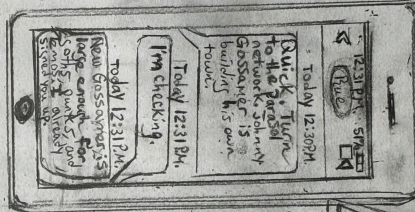 12:31 P.M. 51%
Prue
Today 12:30P.M.
Quick. Turn
to the parasol
network. Johnny
Gossamer is
building his own
town.
Today 12:31P.M.
I'm checking.
Today 12:31P.M.
New Gossamer is
large enough for
parks, and
already
signed up.